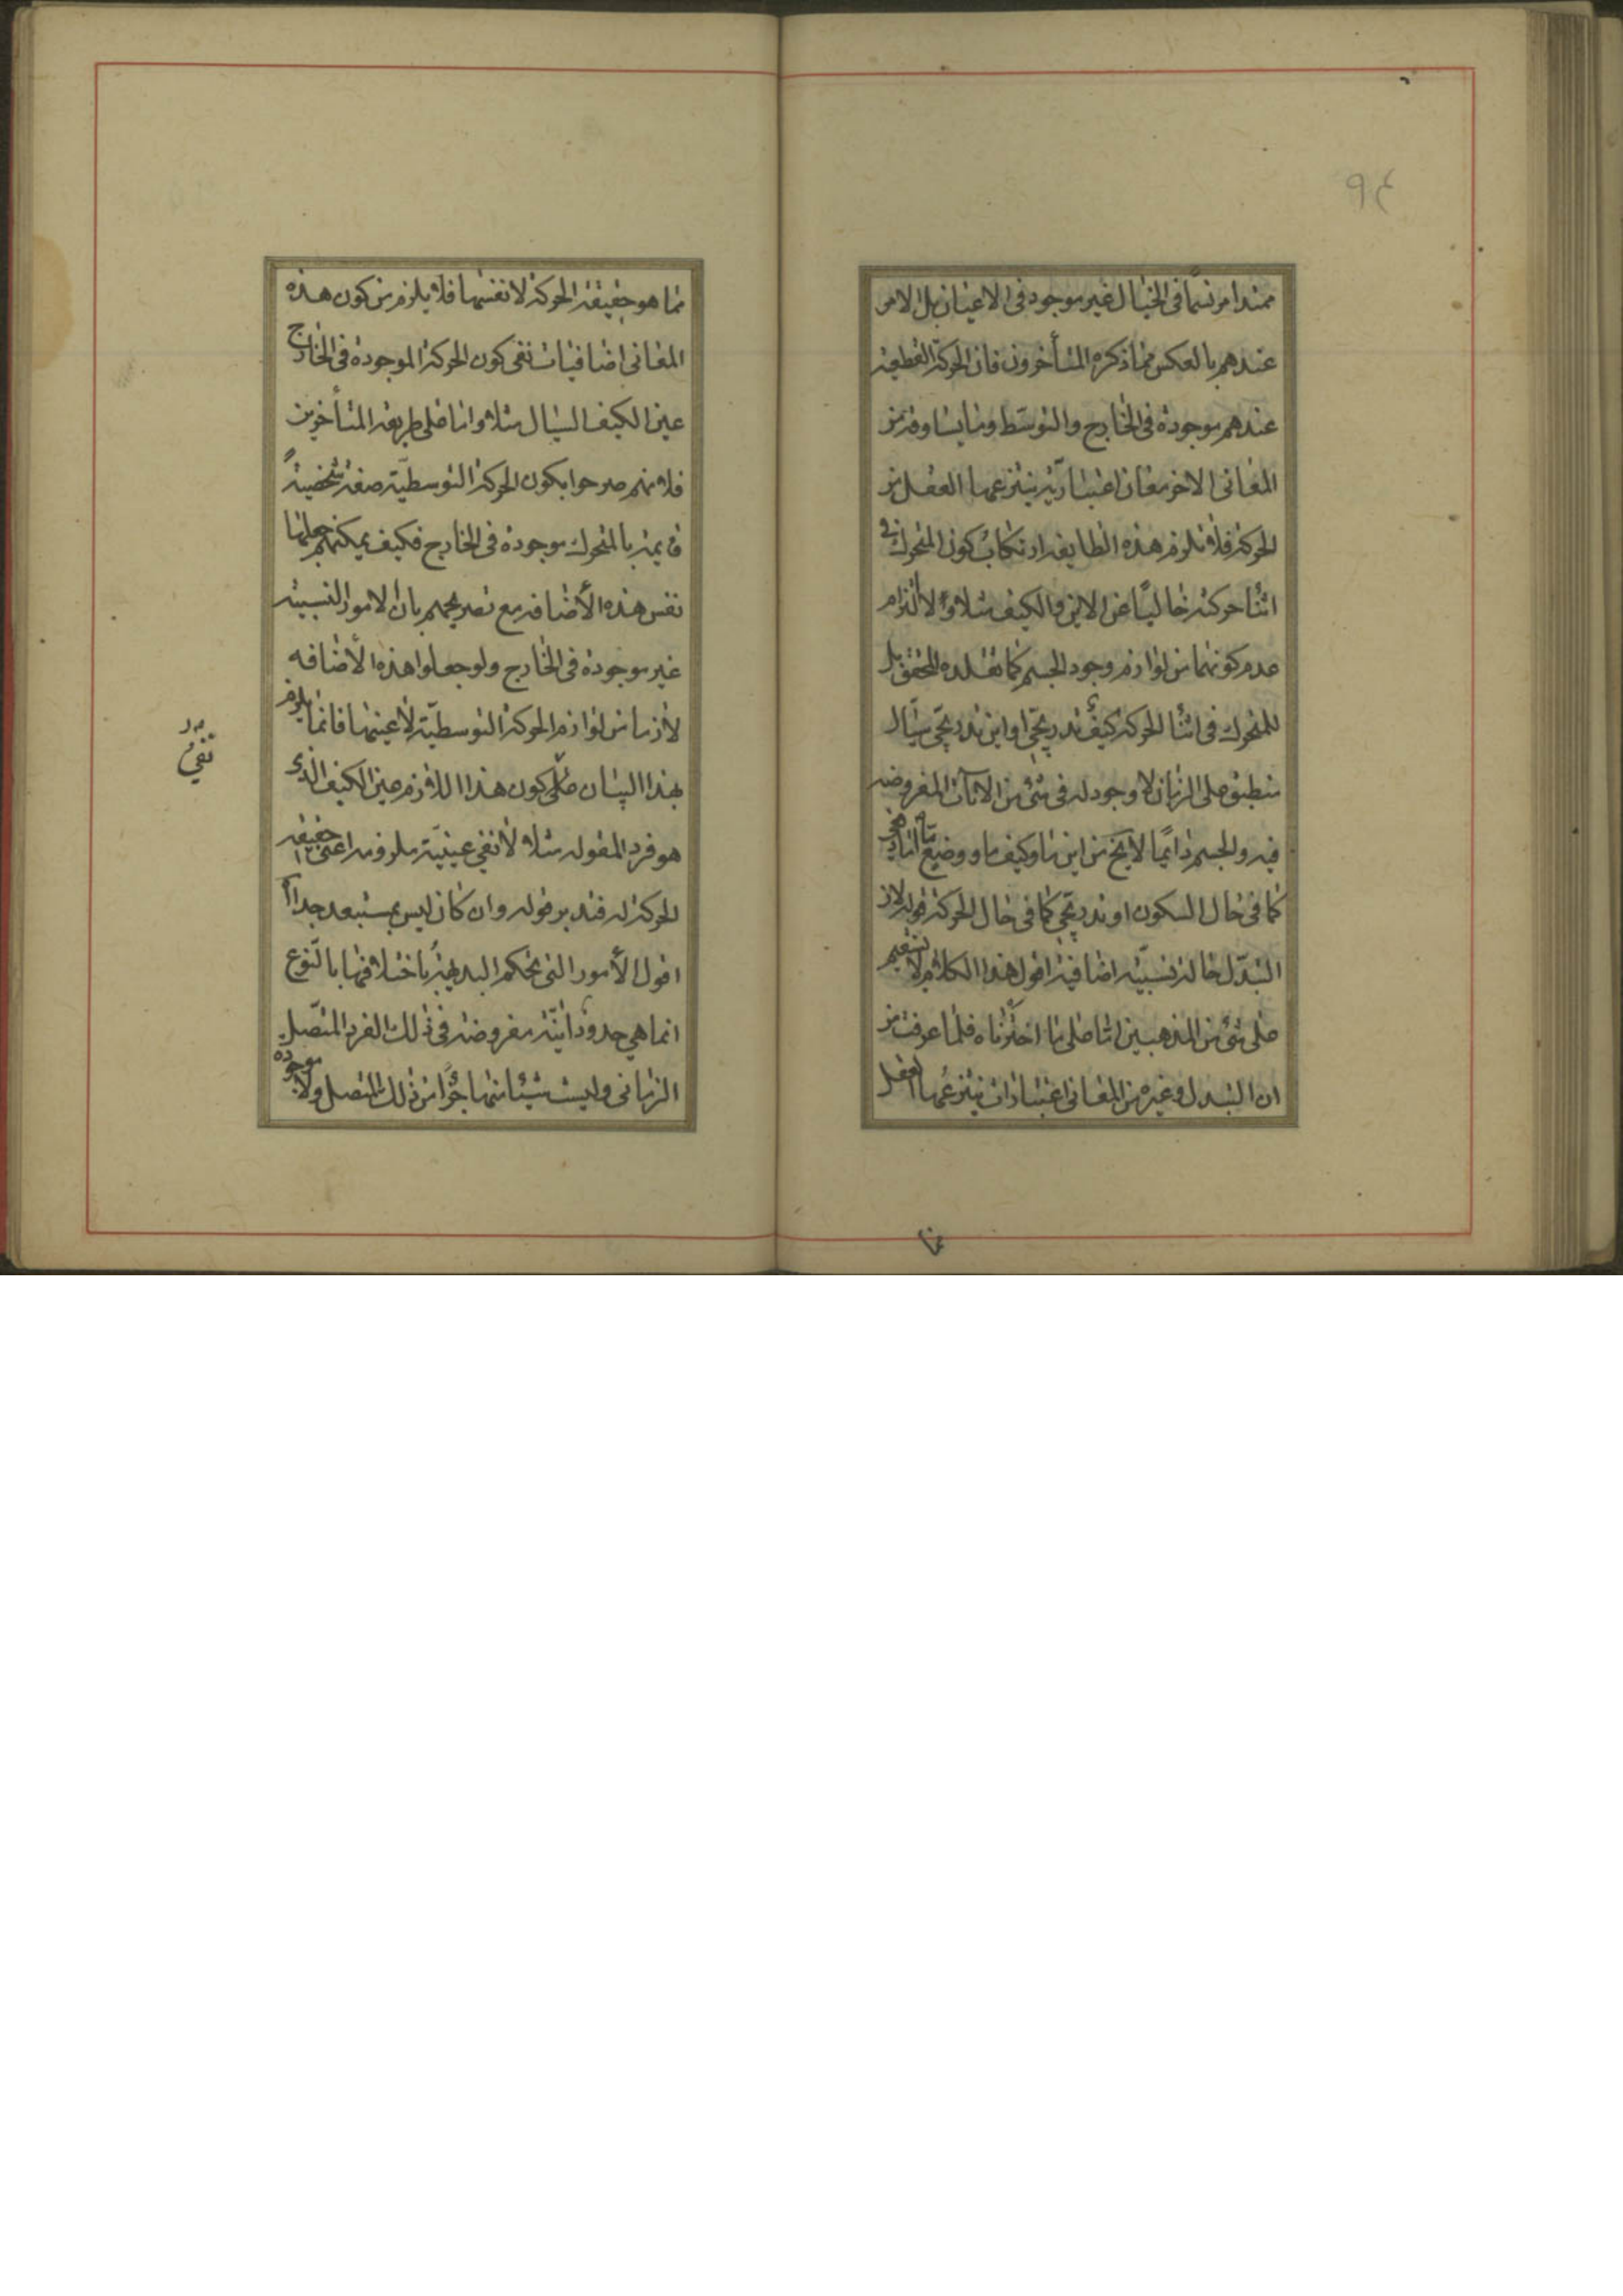 ٩٤
ممتدا مرتسما فى الخيال غير موجود فى الاعيان بل الامر
عندهم بالعكس مما ذكره المتأخرون فان الحركة القطعية
عندهم موجودة فى الخارج والتوسط وما يساوقه من
المعانى الاخر معان اعتبارية ينتزعها العقل من
الحركة فلا تلزم هذه الطايفه ارتكاب كون المتحرك فى
اثنا حركته خاليًا عن الاين والكيف مثلا ولا التزام
عدم كونهما من لوازم وجود الجسم كما نقله المحقق بل
للمتحرك فى اثنا الحركة كيف تدريجى او اين تدريجى سيّال
منطبق على الزمان لا وجود له فى شئ من الآنات المفروضه
فيه والجسم دايمًا لا يخ من اين ما وكيف ما ووضع ما اما
كما فى حال السكون او تدريجى كما فى حال الحركة قوله لان
التبدّل حالة نسبيّه اضافية اقول هذا الكلام لا يستقيم
على شئ من المذهبين اما على ما اخترناه فلما عرفت من
ان التبدل وغيره من المعانى اعتبارات ينتزعها العقل
مما هو حقيقة الحركة لا نفسها فلا يلزم من كون هذه
المعانى اضافيات نفى كون الحركة الموجودة فى الخارج
عين الكيف السيال مثلا واما على طريقه المتأخرين
فلانهم صرحوا بكون الحركة التوسطيّه صفة شخصيةً
قايمة بالمتحرك موجودة فى الخارج فكيف يمكنهم جعلها
نفس هذه الأضافه مع تصريحهم بان الامور النسبية
غير موجودة فى الخارج ولو جعلوا هذه الأضافه
لازما من لوازم الحركة التوسطيّة لا عينها فانما يلزم
بهذا البيان على كون هذا اللازم عين الكيف الذى
نفى
هو فرد المقوله مثلا لا نفى عينيّة ملزومه اعنى حقيقه
الحركة له فتدبر قوله وان كان ليس بمستبعد جدا
اقول الأمور التى يحكم البديهيّة باختلافها بالنّوع
انما هى حدود آنيّة مفروضه فى ذلك الفرد المتّصل
الزمانى وليست شيئا منها جزًا من ذلك المتصل ولا موجوده